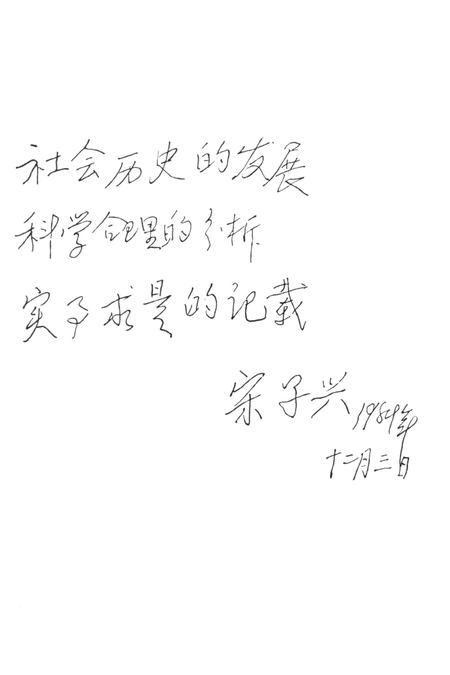 社会历史的发展
科学合理的分析
实事求是的记载
宋子兴 1984年
十二月三日